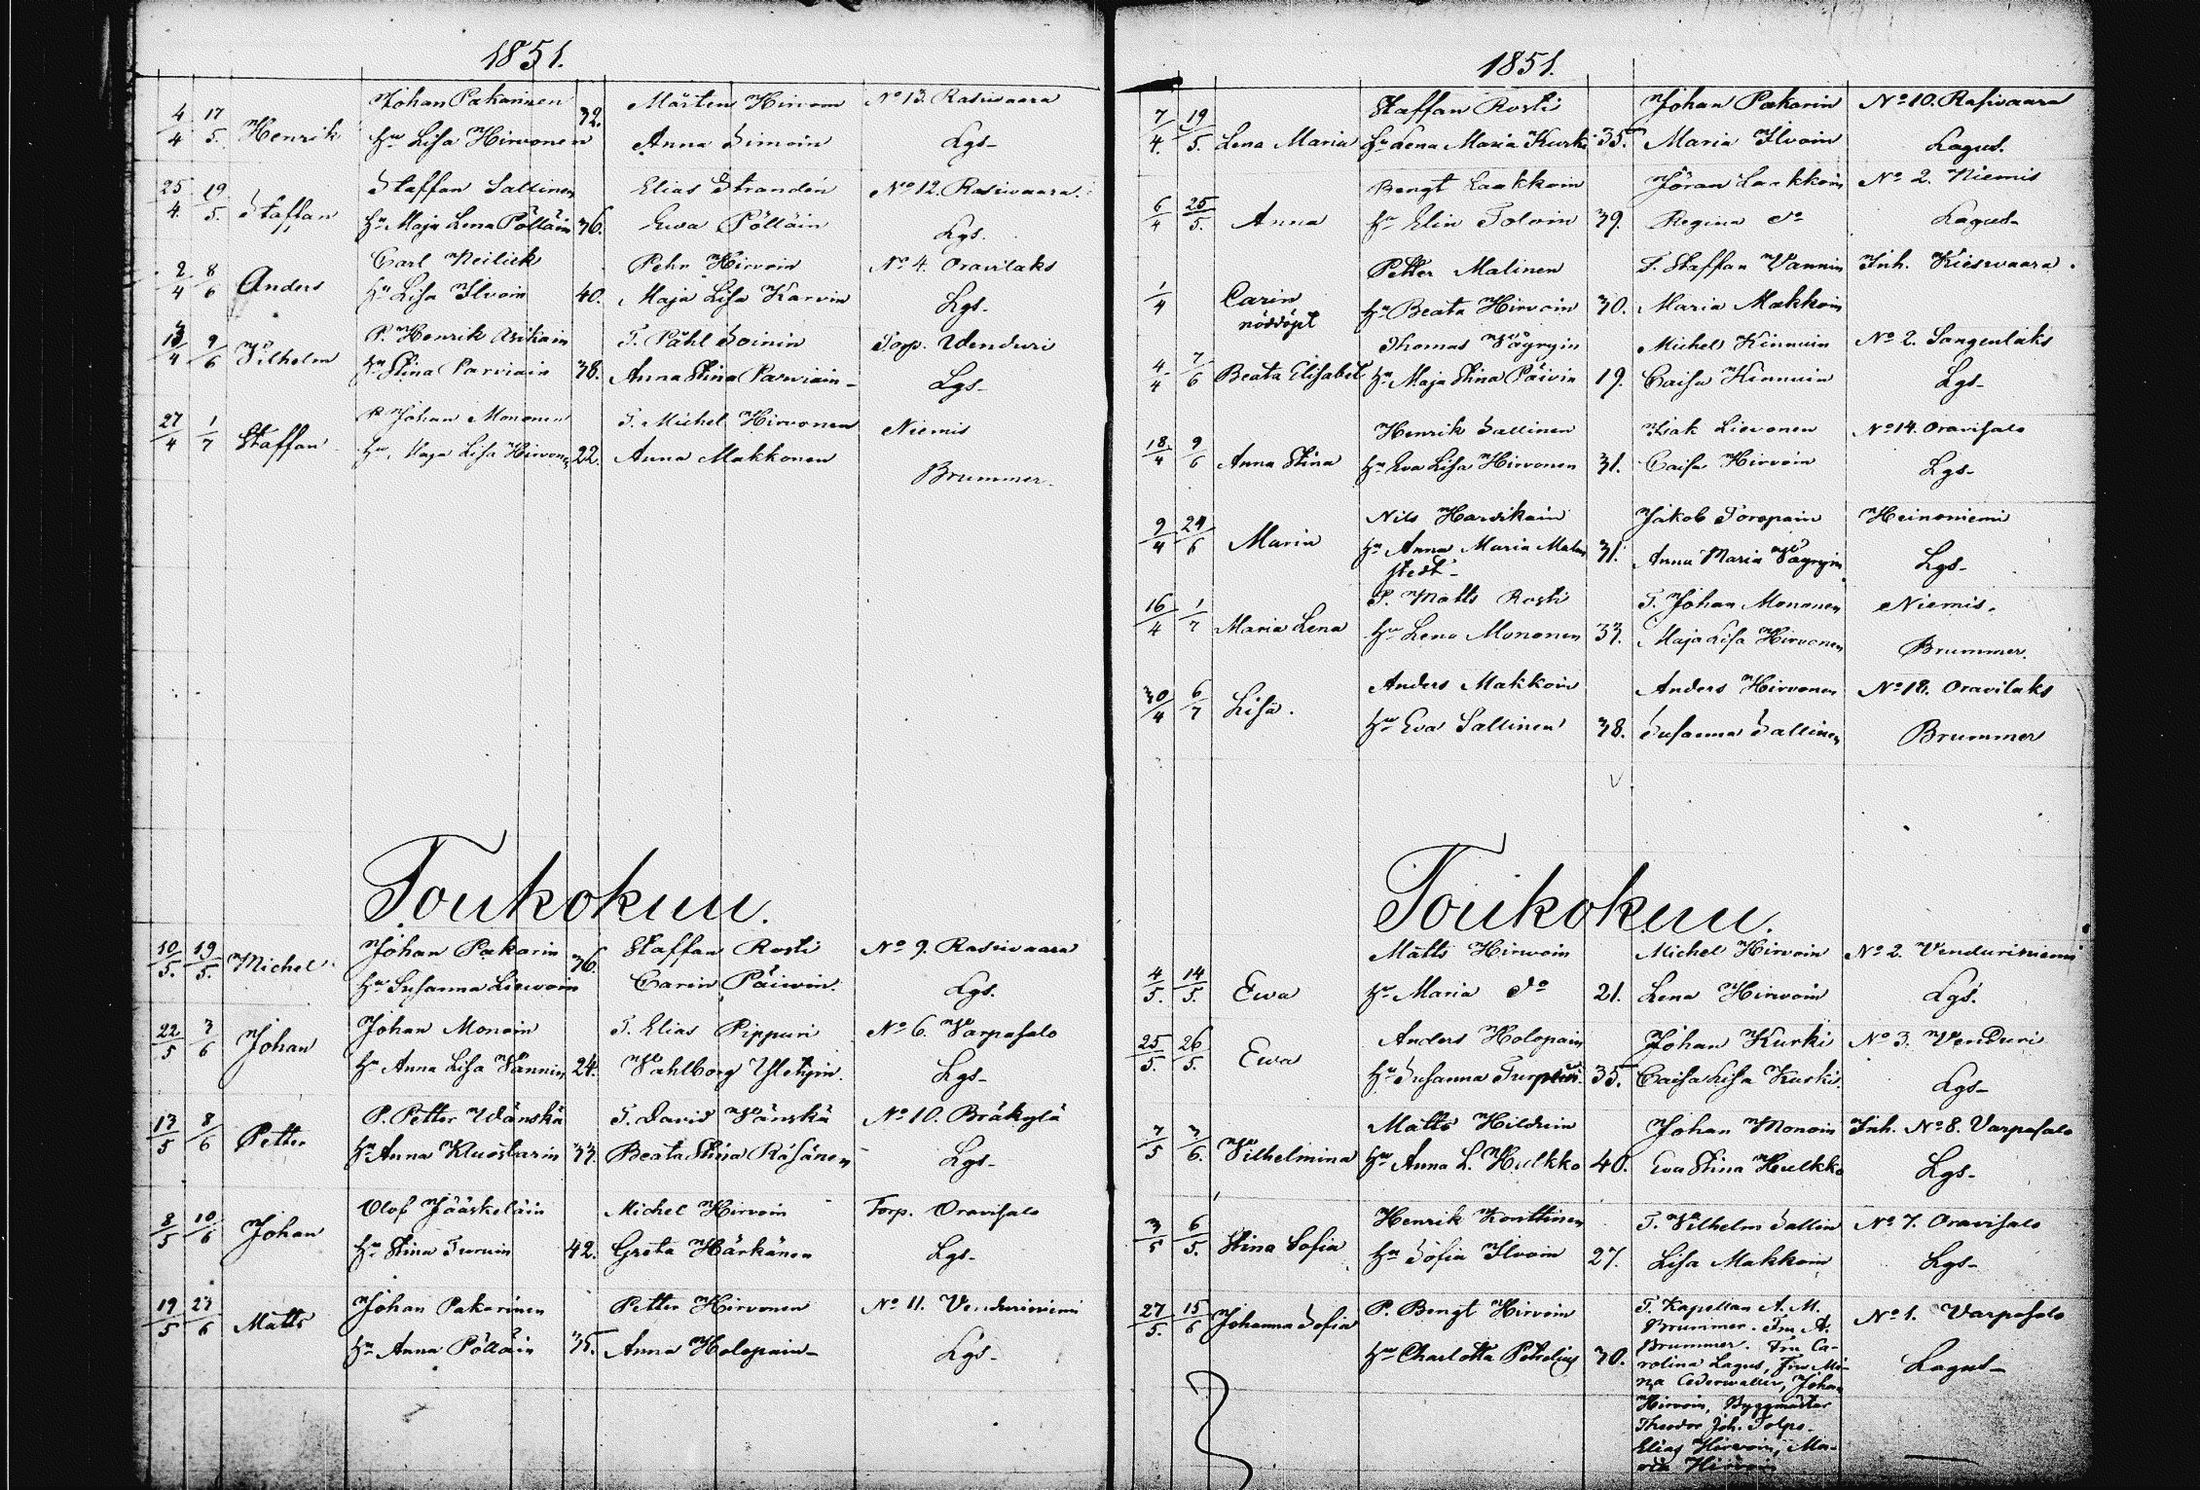 1851.
Johan Pakarinen 32. Mårten Hirvoin No 13. Rasivaara
4/4 17/5. Henrik Hu Lisa Hirvonen Anna Simoin Lgs-
25/4. 19/5. Staffan Staffan Sallinen Elias Strandén No 12. Rasivaara.
Hu Maja Lena Pölläin 36. Ewa Pölläin Lgs.
2/4 8/6 Anders Carl Neilick Pehr Hirvoin No 4. Oravilaks
Hu Lisa Ilvoin 40. Maja Lisa Karvin Lgs-
13/4 9/6 Vilhelm P. Henrik Asikain T. Påhl Soinin Torp. Wenduri
Hu Stina Parviain 38. Anna Stina Parviain- Lgs-
27/4 1/7 Staffan P. Johan Mononen T. Michel Hirvonen Niemis
Hu Maja Lisa Hirvonen 22. Anna Makkonen
Brummer.
Toukokuu.
10/5. 19/5. Michel Johan Pakarin 36. Staffan Rosti No 9. Rasivaara
Hu Susanna Liewoin Carin Päivin. Lgs.
22/5 3/6 Johan Johan Monoin T. Elias Pippuri No 6. Varpasalo
Hu Anna Lisa Vännin 24. Wahlborg Lgs-
13/5 8/6 Petter P. Petter Wänskä T. David Vänskä No 10. Bräkylä
Hu Anna Kluostarin 33. Beata Stina Räsänen Lgs-
8/5 10/6 Johan Olof Jääskeläin Michel Hirvoin Torp. Oravisalo
Hu Stina Turuin 42. Greta Härkänen Lgs-
19/5 23/6 Matts Johan Pakarinen Petter Hirvonen No 11. Venduriniemi
Hu Anna Pölläin 35. Anna Holopain- Lgs-
1851.
7/4. 19/5. Lena Maria Staffan Rosti Johan Pakarin No 10. Rasivaara
Hu Lena Maria Kurki 35. Maria Ilvoin Lagus.
6/4 25/5. Anna Bengt Laakkoin Jöran Laakkoin No 2. Niemis
Hu Elin Tolvin 39. Regina do Lagus-
1/4 Carin Petter Malinen T. Staffan Vannin Inh. Kiesvaara.
nöddöpt Hu Beata Hirvoin 30. Maria Makkoin
4/4 7/6 Beata Elisabet Thomas Vägryin Michel Kinnuin No 2. Sangenlaks
Hu Maja Stina Päivin 19. Caisa Kinnuin Lgs-
18/4 9/6 Anna Stina Henrik Sallinen Isak Lievonen No 14. Oravisalo
Hu Eva Lisa Hirvonen 31. Caisa Hirvoin Lgs-
9/4 24/6 Maria Nils Harvikain Jakob Toropain Heinoniemi
Hu Anna Maria Malm 31. Anna Maria Vägryin Lgs-
stedt-
16/4 1/7 Maria Lena P. Matts Rosti T. Johan Mononen Niemis.
Hu Lena Mononen 33. Maja Lisa Hirvonen Brummer.
30/4 6/7 Lisa. Anders Makkoin Anders Hirvonen No 18. Oravilaks
Hu Eva Sallinen 38. Susanna Sallinen Brummer
Toukokuu.
Matts Hirvoin Michel Hirvoin No 2. Venduriniemi
4/5. 14/5. Ewa Hu Maria do 21. Lena Hirvoin Lgs.
25/5. 26/5. Ewa Anders Holopain Johan Kurki No 3. Venduri
Hu Susanna 35. Caisa Lisa Kurki. Lgs-
7/5 3/6. Vilhelmina Matts Hildein Johan Monoin Inh. No 8. Varpasalo
Hu Anna L. Hulkko 40. Eva Stina Hulkko Lgs-
3/5 6/5. Stina Sofia Henrik Konttinen T. Vilhelm Sallin No 7. Oravisalo
Hu Sofia Ilvoin 27. Lisa Makkoin Lgs-
27/5. 15/6 Johanna Sofia P. Bengt Hirvoin T. Kapellan A. M. No 1. Varpasalo
Brummer. Fru A.
Hu Charlotta Petrelius 30. Brummer. Fru Ca-
rolina Lagus, Fru Mi- Lagus-
na Cederwaller, Johan
Hirvoin, Byggmästar
Theodor Joh. Tolpo.
Elias Hirvoin, Ma-
ria Hirvoin